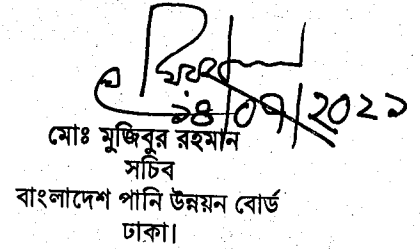 ১৪/০৭/২০২১
মোঃ মুজিবুর রহমান
সচিব
বাংলাদেশ পানি উন্নয়ন বোর্ড
ঢাকা।